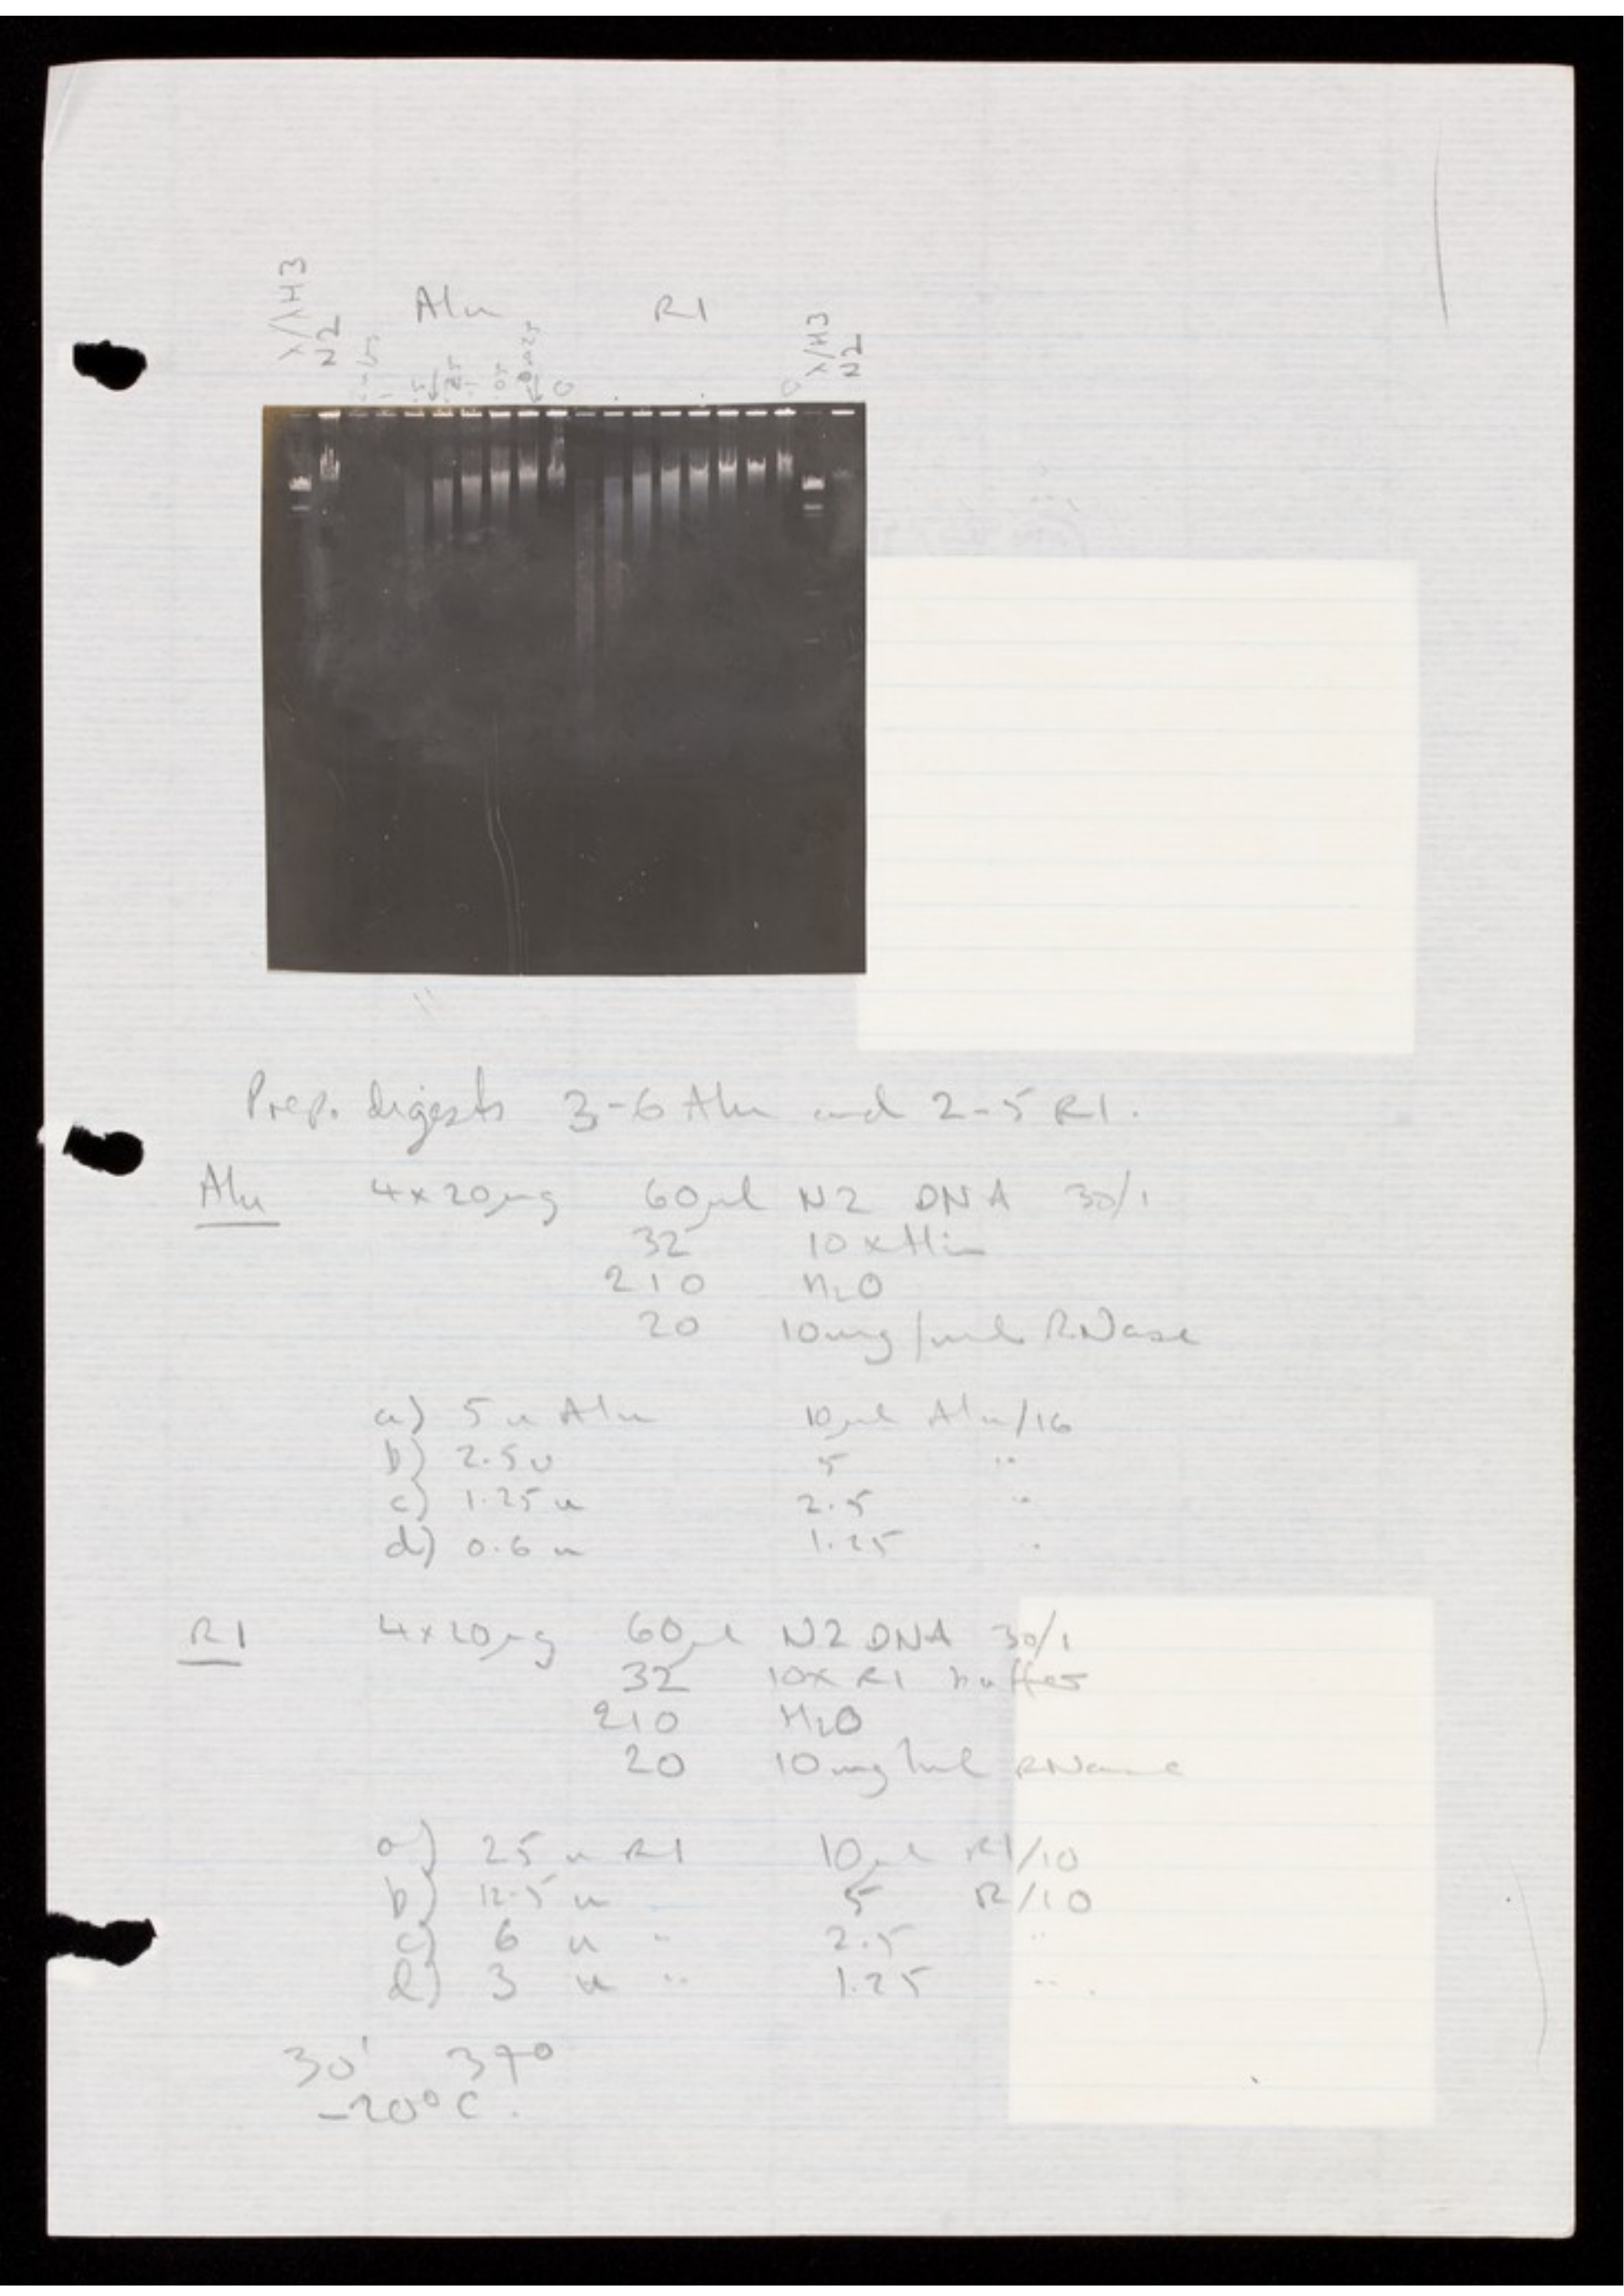 λ/λH3
N2
Alu
R1
λ/H3
N2
.5
.25
.1
.05
0.025
0
0
Prep. digests 3-6 Alu and 2-5 R1.
Alu 4x20μg 60μl N2 DNA 30/1
32 10x Hin
210 H2O
20 10mg/ml RNase
a) 5 u Alu 10μl Alu/16
b) 2.5 u 5 "
c) 1.25 u 2.5 "
d) 0.6 u 1.25 "
R1 4x20μg 60μl N2 DNA 30/1
32 10x R1 buffer
210 H2O
20 10mg/ml RNase
a) 25 u R1 10μl R1/10
b) 12.5 u 5 R/10
c) 6 u " 2.5 "
d) 3 u " 1.25 "
30' 37°
-20°C.